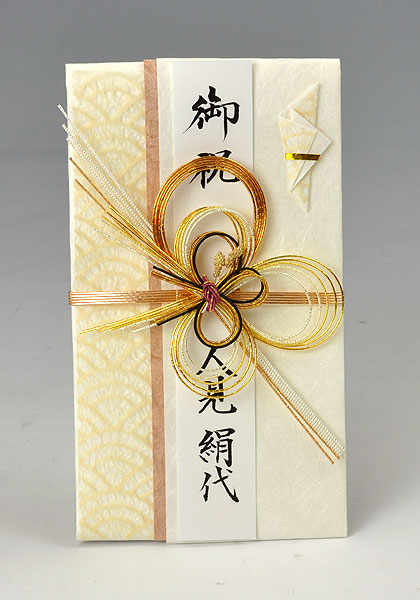 御祝
人見絹代